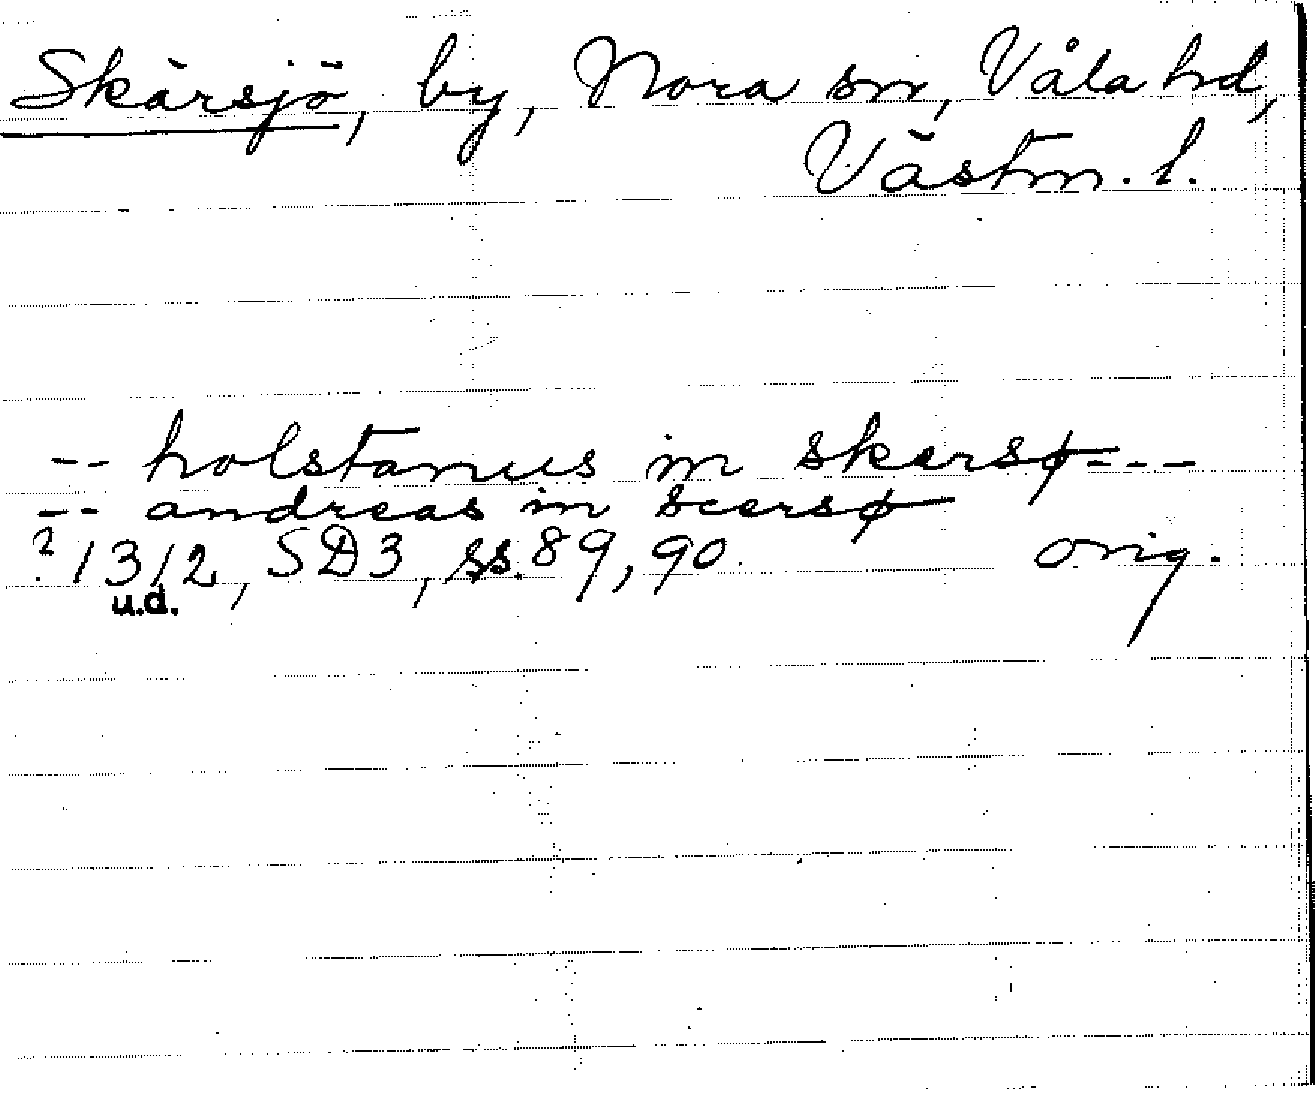 Skärsjö, by, Nora sn, Våla hd,
Västm. l.
-- holstanus in skersø---
-- andreas in scersø
? 1312, SD3, ss. 89, 90. orig.
u.d.